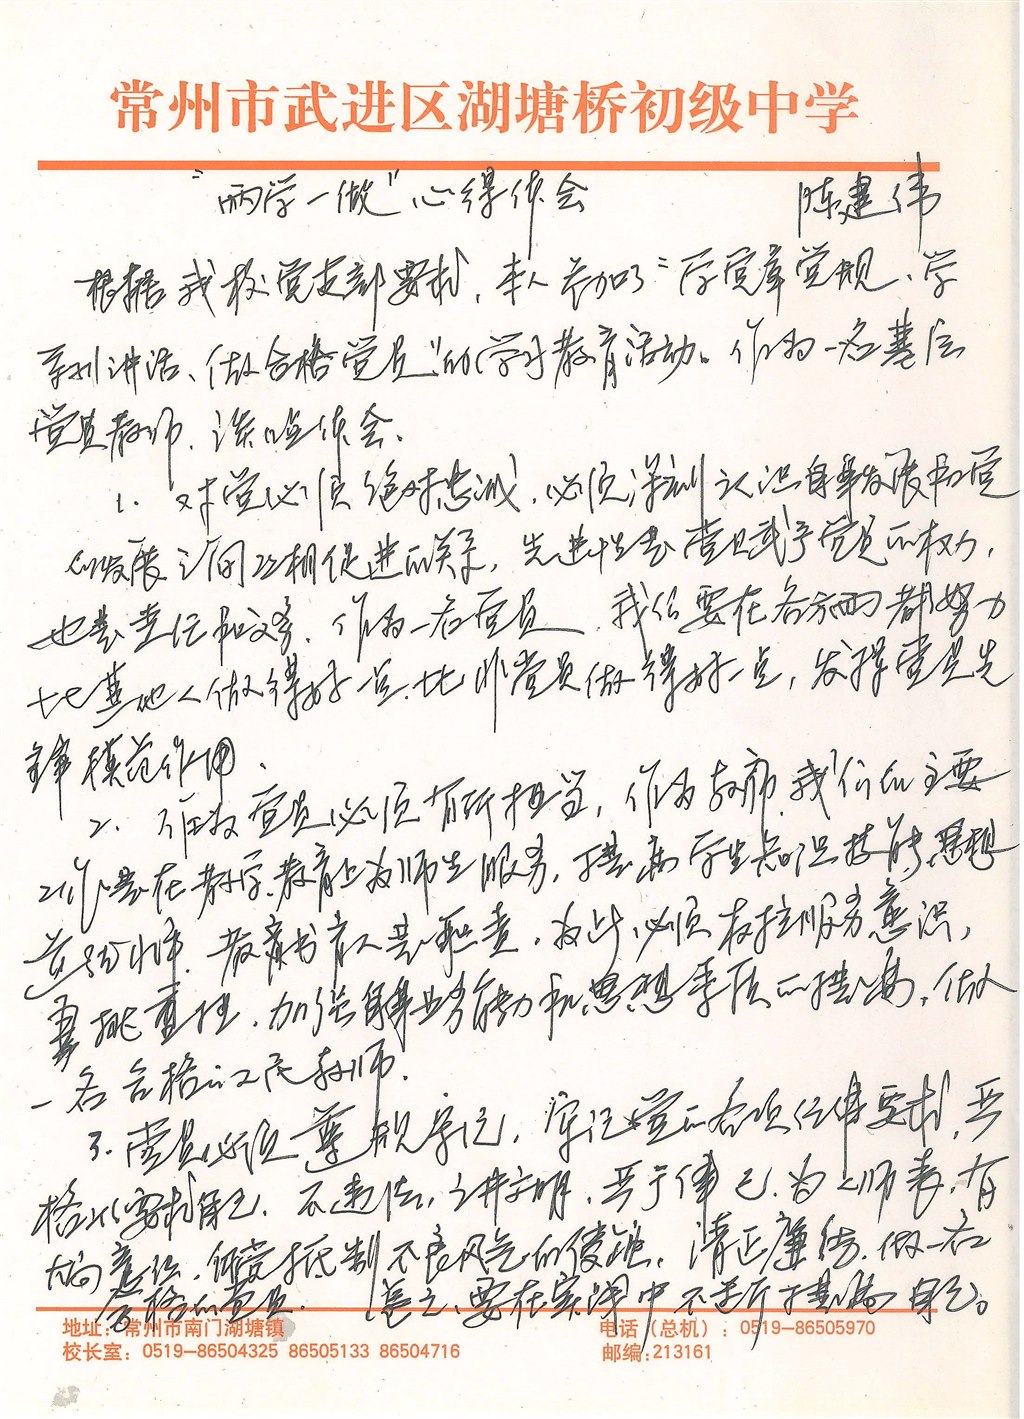 常州市武进区湖塘桥初级中学
“两学一做”心得体会 陈建伟
根据我校党支部要求，本人参加了“学党章党规、学
系列讲话、做合格党员”的学习教育活动。作为一名基层
党员教师，谈几点体会。
1. 对党必须绝对忠诚，必须深刻认识自身发展和党
的发展之间互相促进的关系，先进性是党赋予党员的权力，
也是责任和义务，作为一名党员，我们要在各方面都努力
比其他人做得好一点，比非党员做得好一点，发挥党员先
锋模范作用。
2. 作为党员必须有所担当，作为教师，我们的主要
工作是在教学、教育上为师生服务，提高学生知识技能、思想
道德水平，教书育人是职责，为此必须树立服务意识，
勇挑重担，加强自身业务能力和思想素质的提高，做
一名合格的人民教师。
3. 党员必须遵规守纪，牢记党的各项纪律要求，严
格的要求自己，不违法，讲文明，严于律己，为人师表，有
大局意识，自觉抵制不良风气的侵蚀，清正廉洁，做一名
合格的党员。 总之，要在实践中不断提高自己。
地址：常州市南门湖塘镇 电话（总机）：0519—86505970
校长室：0519—86504325 86505133 86504716 邮编：213161